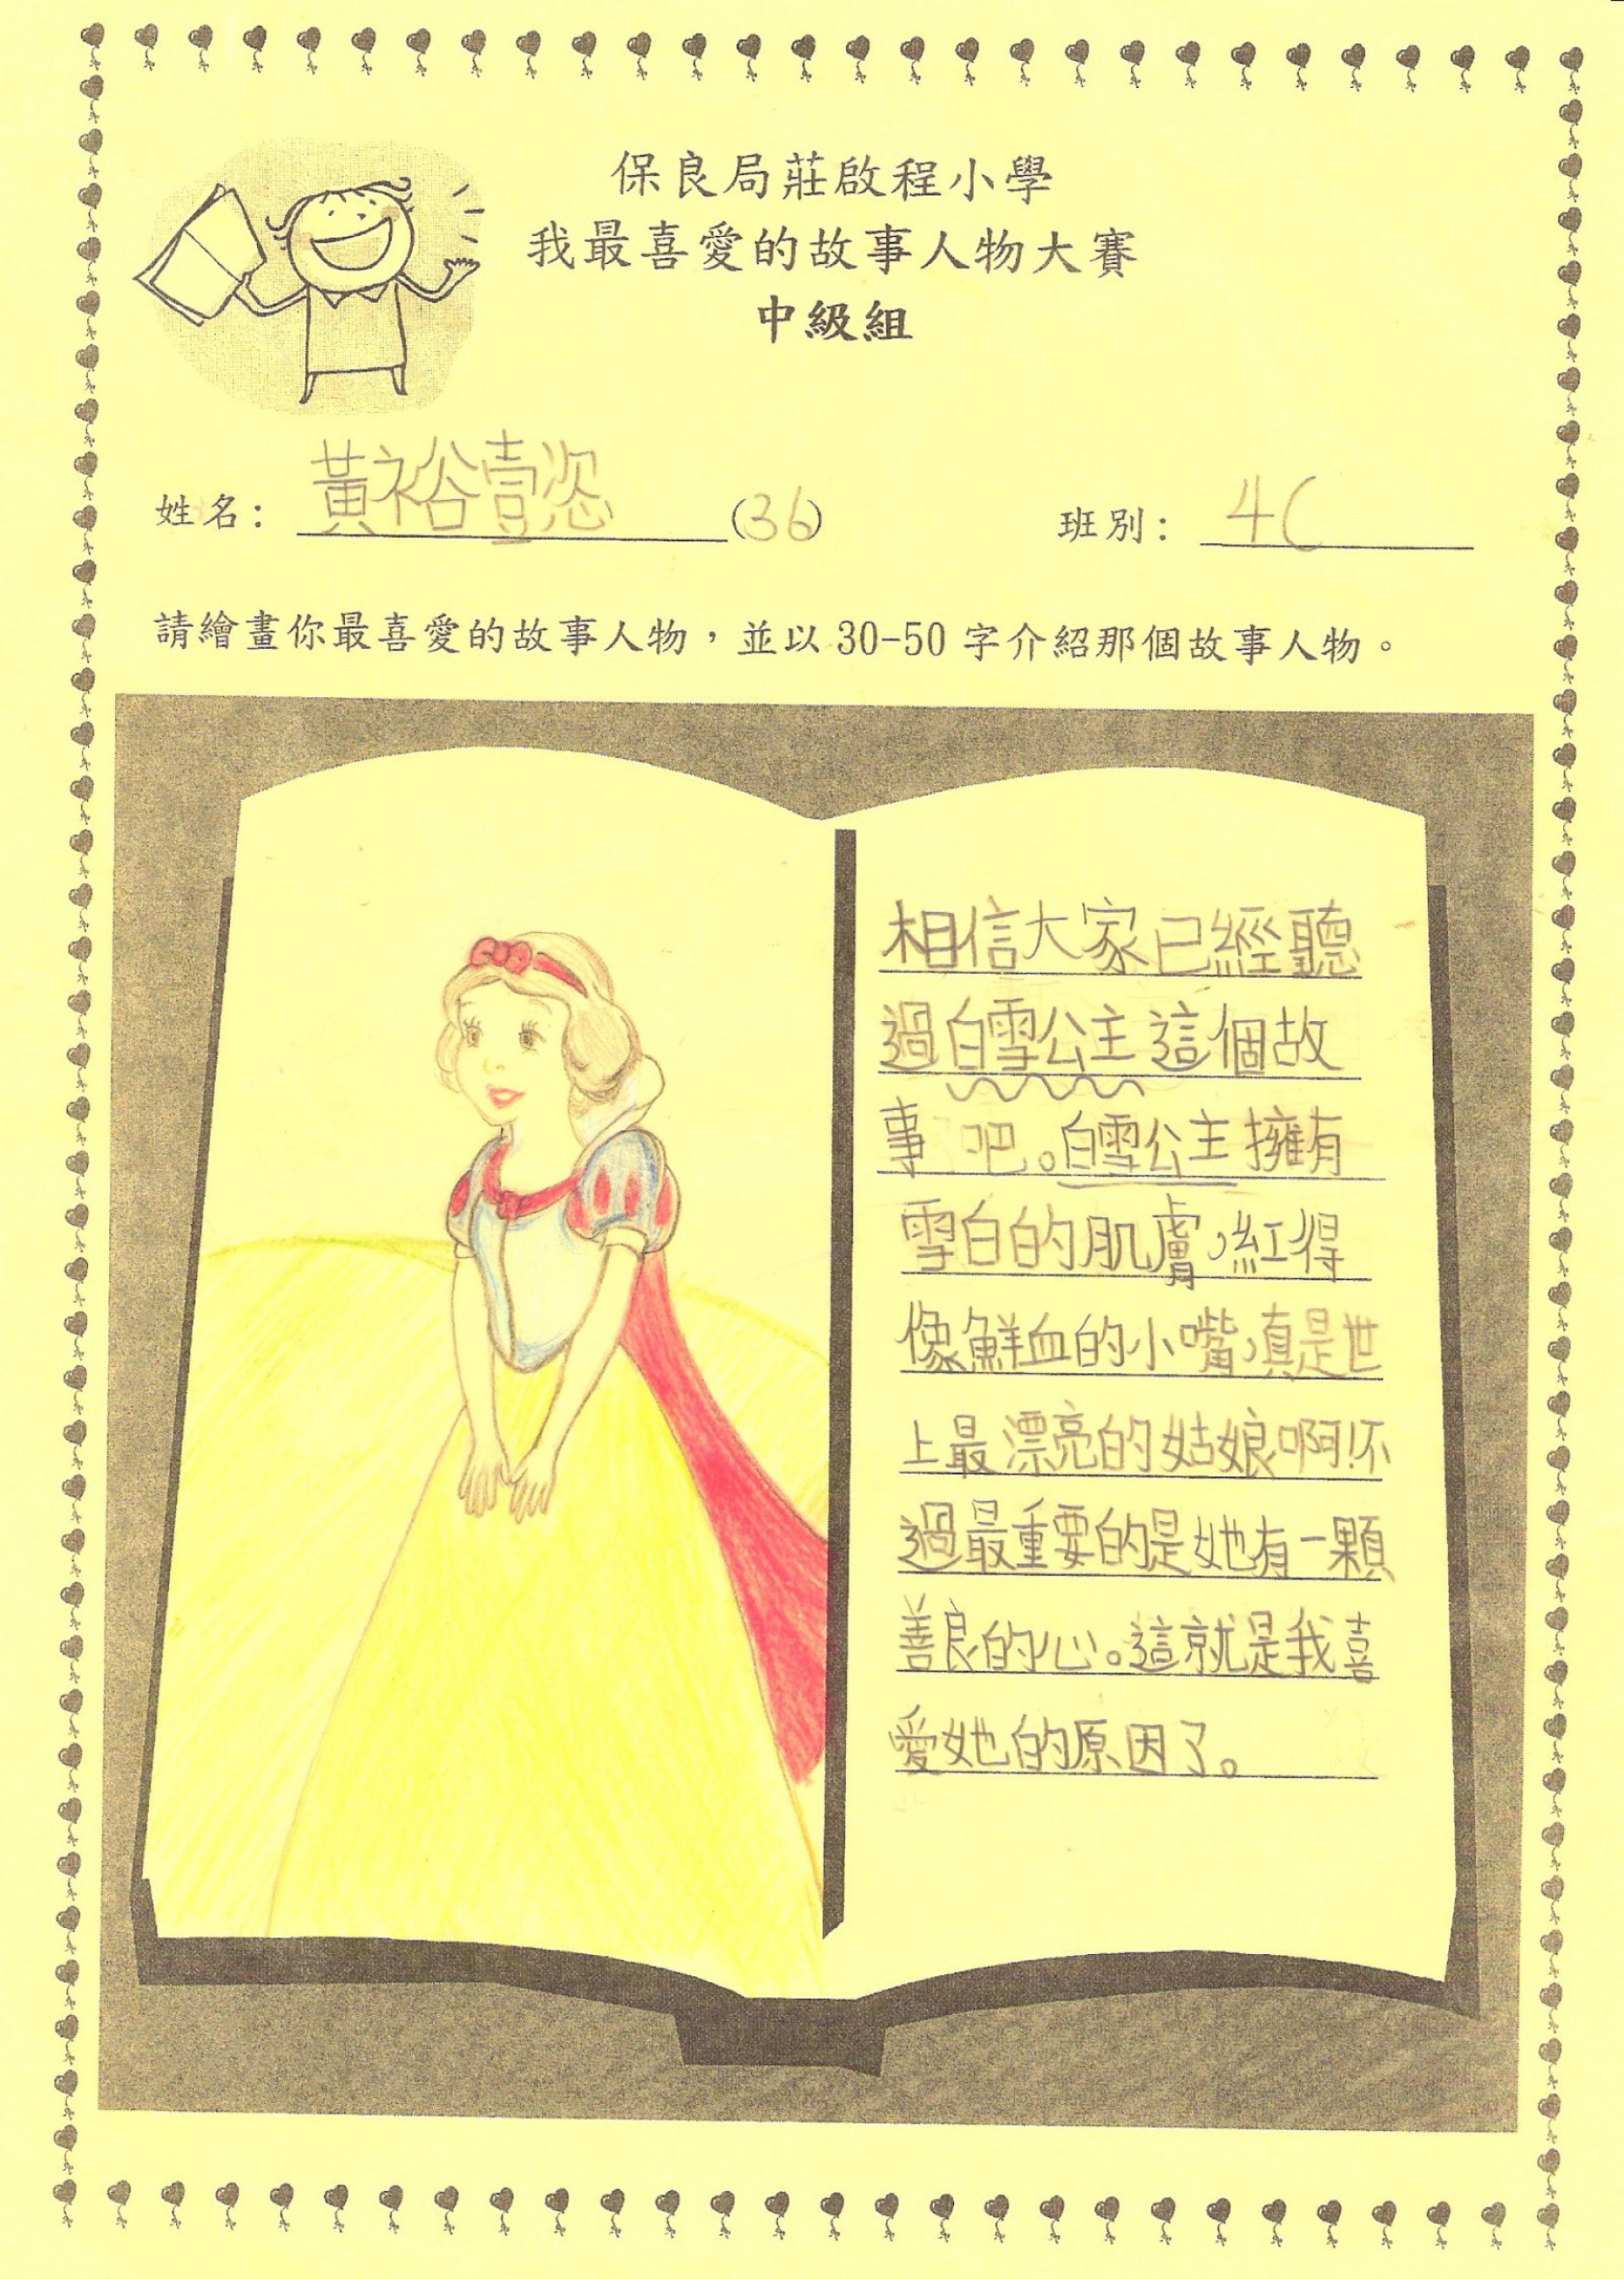 保良局莊啟程小學
我最喜愛的故事人物大賽
中級組
姓名：黃裕壹恣(36) 班別：4C
請繪畫你最喜愛的故事人物，並以30-50字介紹那個故事人物。
相信大家已經聽
過白雪公主這個故
事吧。白雪公主擁有
雪白的肌膚，紅得
像鮮血的小嘴，真是世
上最漂亮的姑娘啊！不
過最重要的是她有一顆
善良的心。這就是我喜
愛她的原因了。